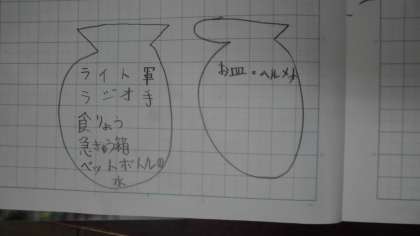 ライト 軍
ラジオ 手
食りょう
急きゅう箱
ペットボトルの
水
お皿・ヘルメット